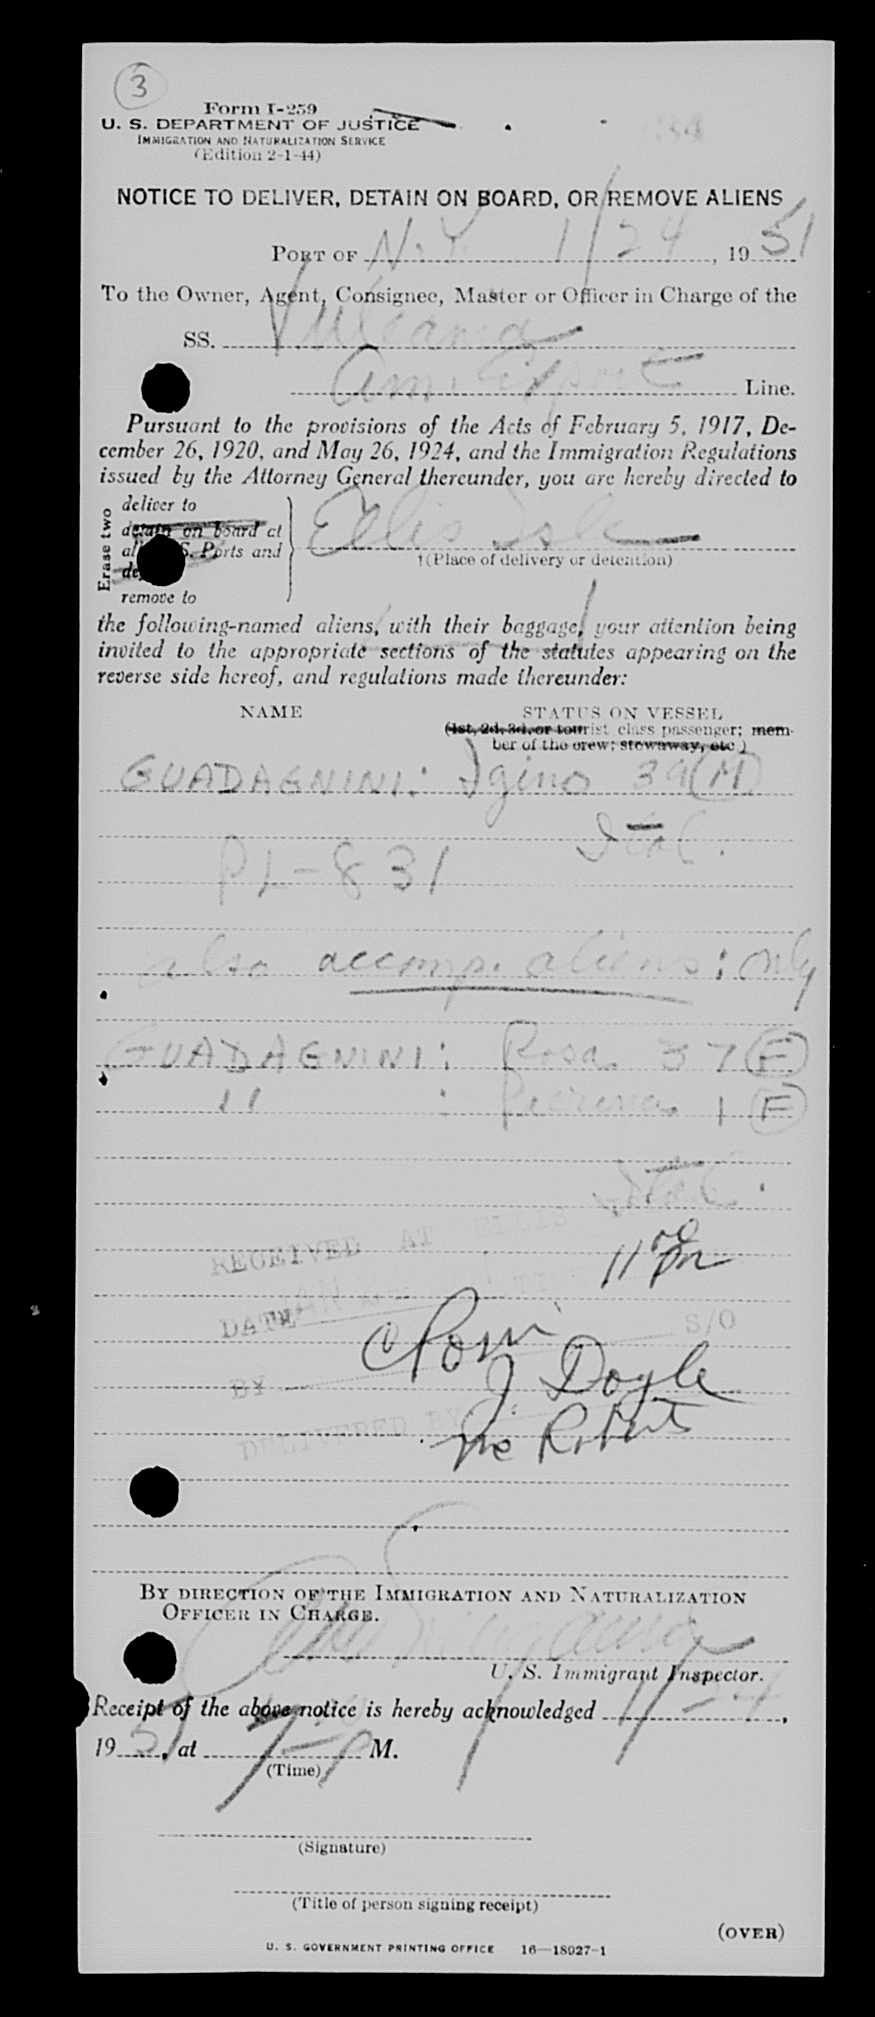 3
Form I-259
U. S. DEPARTMENT OF JUSTICE
IMMIGRATION AND NATURALIZATION SERVICE
(Edition 2-1-44)
NOTICE TO DELIVER, DETAIN ON BOARD, OR REMOVE ALIENS
PORT OF N.Y. 1/24, 1951
To the Owner, Agent, Consignee, Master or Officer in Charge of the
SS. Vulcania
Am. Export Line.
Pursuant to the provisions of the Acts of February 5, 1917, De-
cember 26, 1920, and May 26, 1924, and the Immigration Regulations
issued by the Attorney General thereunder, you are hereby directed to
Erase two
deliver to
detain on board at
all U.S. Ports and
remove to
Ellis Isle
†(Place of delivery or detention)
the following-named aliens, with their baggage, your attention being
invited to the appropriate sections of the statutes appearing on the
reverse side hereof, and regulations made thereunder:
NAME STATUS ON VESSEL
(1st, 2d, 3d, or tourist class passenger; mem-
ber of the crew; stowaway, etc.)
GUADAGNINI: Igino 39 (M)
Ital.
PL-831
also accomp. aliens: only
GUADAGNINI: Rosa 37 (F)
" : 1 (F)
Ital.
RECEIVED AT ELLIS
11 PM
DATE
S/O
BY
J Doyle
DELIVERED BY
BY DIRECTION OF THE IMMIGRATION AND NATURALIZATION
OFFICER IN CHARGE.
U. S. Immigrant Inspector.
Receipt of the above notice is hereby acknowledged 1/24,
1951, at 7-P M.
(Time)
(Signature)
(Title of person signing receipt)
(OVER)
U. S. GOVERNMENT PRINTING OFFICE 16—18027-1